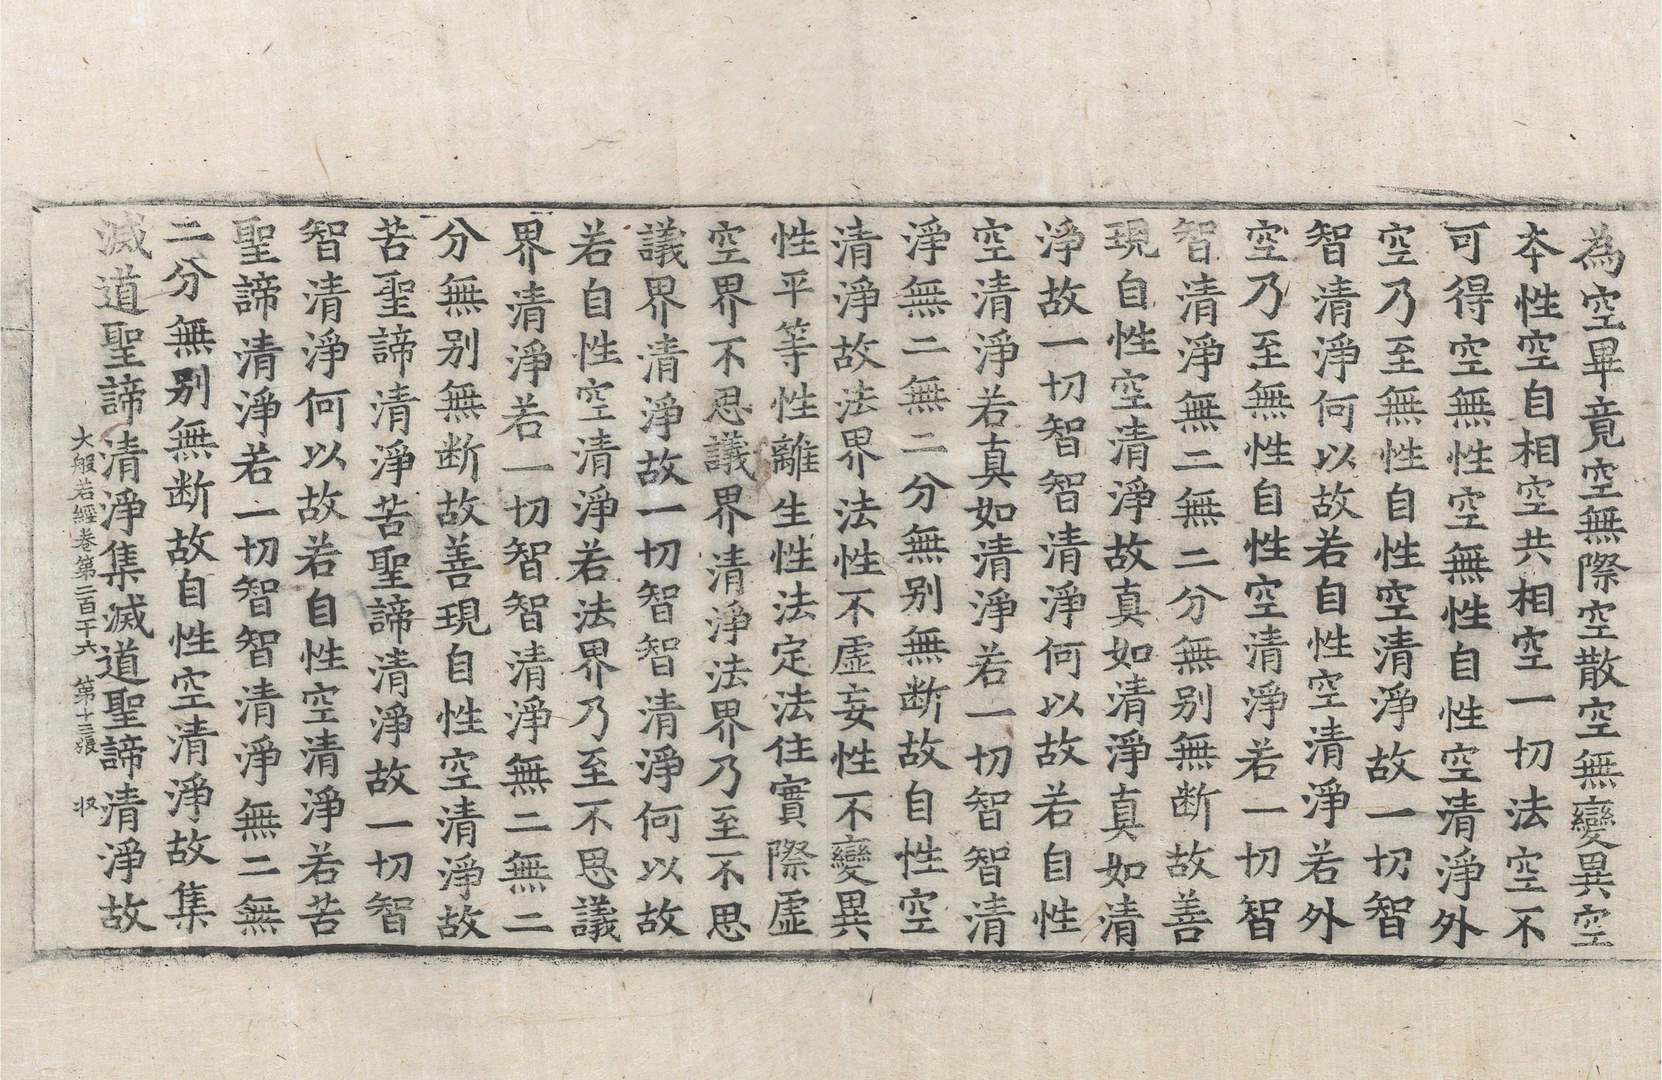 為空畢竟空無際空散空無變異空
本性空自相空共相空一切法空不
可得空無性空無性自性空清淨外
空乃至無性自性空清淨故一切智
智清淨何以故若自性空清淨若外
空乃至無性自性空清淨若一切智
智清淨無二無二分無别無断故善
現自性空清淨故真如清淨真如清
淨故一切智智清淨何以故若自性
空清淨若真如清淨若一切智智清
淨無二無二分無别無断故自性空
清淨故法界法性不虛妄性不變異
性平等性離生性法定法住實際虛
空界不思議界清淨法界乃至不思
議界清淨故一切智智清淨何以故
若自性空清淨若法界乃至不思議
界清淨若一切智智清淨無二無二
分無别無断故善現自性空清淨故
苦聖諦清淨苦聖諦清淨故一切智
智清淨何以故若自性空清淨若苦
聖諦清淨若一切智智清淨無二無
二分無别無断故自性空清淨故集
滅道聖諦清淨集滅道聖諦清淨故
大般若經卷第二百一十六 第十三張 收